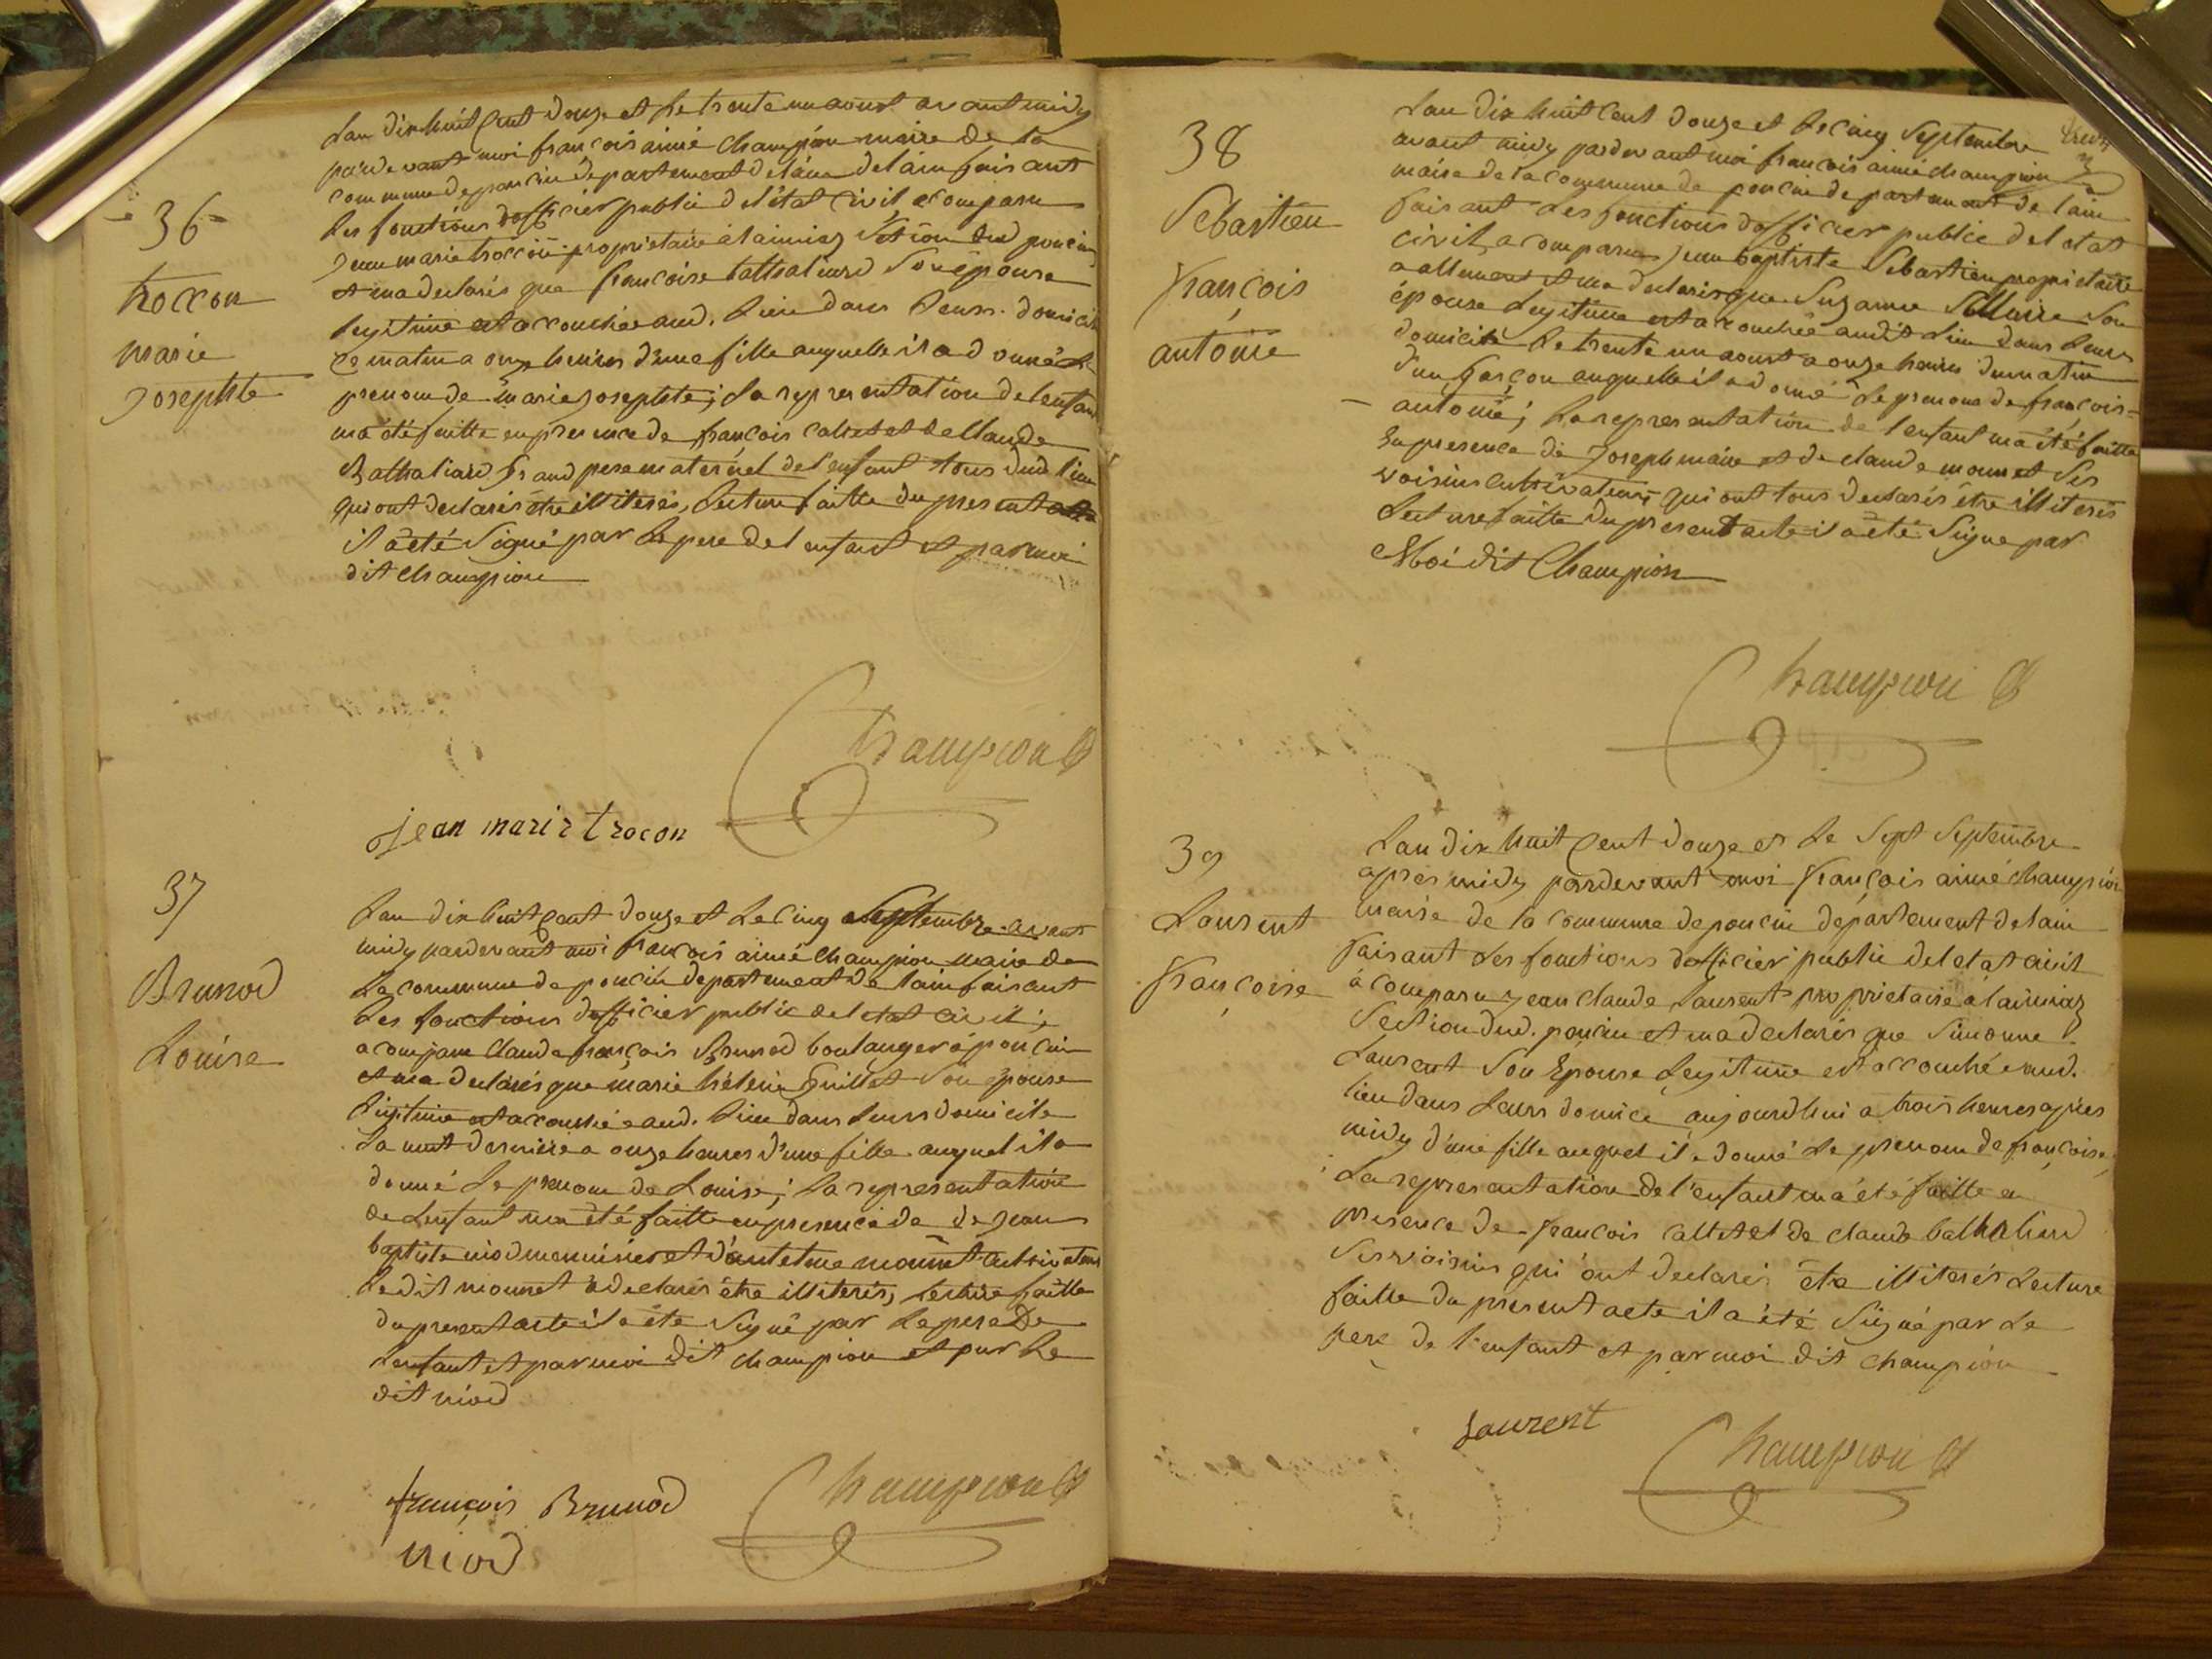 36
troccon
marie
josephte
Lan dix huit Cent douze et le trente un aoust avant midy
pardevant moi françois aimé champion maire de la
commune de poncin departement de lain faisant
les fonctions dofficier public de l'état civil a comparu
jean marie troccon proprietaire a laimiaz section dud poncin
et ma declarés que francoise bathaliard son épouse
legitime est accouchée aud. lieu dans leurs domicile
ce matin a onze heures d'une fille auquelle il a donné le
prenom de marie josephte; La representation de lenfant
ma été faitte en presence de françois caltet et de Claude
Bathaliard grand pere maternel de l'enfant tous dud lieu
qui ont declarés etre illiterés, Lecture faitte du present acte
il a été signé par le pere de l'enfant et par moi
dit champion
Champion
jean marie trocon
37
Brunod
Louise
Lan dix huit Cent douze et Le cinq Septembre avant
midy pardevant moi françois aimé champion maire de
La commune de poncin departement de lain faisant
Les fonctions d'officier public de l'etat civil
a comparu claude françois Brunod boulanger a poncin
et ma declarés que marie hélène guillet son épouse
Légitime est accouchée aud. lieu dans leurs domicile
La nuit derniere a onze heures d'une fille auquel il a
donné le prenom de Louise; La representation
de Lenfant ma été faitte en presence de de jean
baptiste niod menuisier et d'antelme mounet cultivateur
Le dit mounet a declarés être illiterés, lecture faitte
du present acte il a été signé par le pere De
Lenfant et par moi dit champion et par le
dit niod
françois Brunod
Champion
niod
38
Sebastien
françois
antoine
Lan dix huit Cent douze et Le cinq Septembre
avant midy pardevant moi françois aimé champion
maire de la commune de poncin departement de lain
faisant les fonctions dofficier public de l etat
civil, a comparu jean baptiste Sebastien proprietaire
a allement et ma declarés que Suzanne Son
épouse Legitime est accouchée audit Lieu dans leurs
domicile le trente un aoust a onze heures du matin
d'un garçon auquelle il a donné Le prenom de françois
antoine; La representation de l'enfant ma été faitte
En presence de joseph maire et de claude mounet Ses
voisins cultivateurs qui ont tous declarés être illiterés
Lecture faitte du present acte il a été signé par
Moi dit Champion
Champion
39
Laurent
françoise
Lan dix huit Cent douze et Le Sept Septembre
apres midy pardevant moi françois aimé champion
maire de la commune de poncin département de lain
faisant Les fonctions dofficier public de l etat civil
à comparu jean claude Laurent proprietaire a laimiaz
Section dud. poncin et ma declarés que Simonne
Laurent Son Epouse Legitime est accouchée aud.
lieu dans Leurs domice aujourdhui a trois heures apres
midy d'une fille auquel il a donné Le prenom de françoise,
La representation de l'enfant ma été faitte en
presence de françois caltet et de claude bathaliard
Ses voisins qui ont declarés être illiterés Lecture
faitte du present acte il a été signé par Le
pere de l'enfant et par moi dit champion
Laurent
Champion